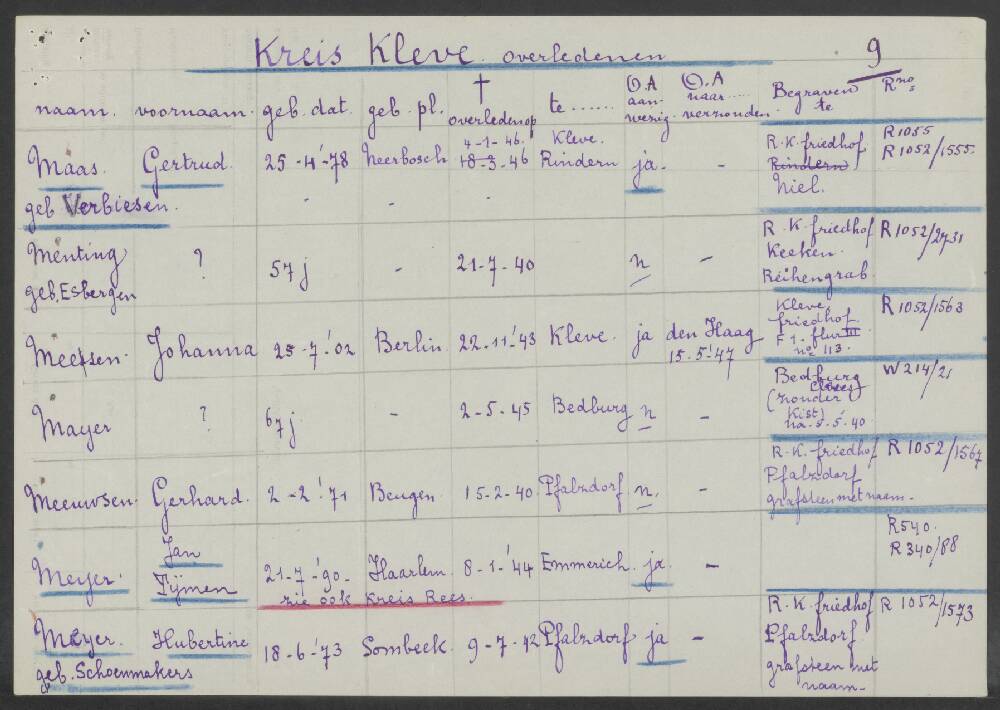 Kreis Kleve. overledenen 9
naam. voornaam. geb. dat. geb. pl. † overleden op te ...... O.A aanwezig. O.A naar ..... verzonden Begraven te R nos
Maas. Gertrud. 25-4-'78 Neerbosch 4-1-46. 18-3-46 Kleve. Rindern ja. - R.K. friedhof Rindern Niel. R1055 R1052/1555.
geb Verbiesen. - - -
Menting geb. Esbergen ? 57j - 21-7-40 n - R.K friedhof Keeken. Reihengrab. R1052/2731
Meetsen. Johanna 25-7-'02 Berlin. 22-11-'43 Kleve. ja den Haag 15.5-'47 Kleve friedhof F1-flur III no 113. R1052/1563
Mayer ? 67j - 2-5-45 Bedburg n - Bedburg Cleves (zonder Kist) na.-5-5-40 W214/21
Meeuwsen. Gerhard. 2-2-'71 Beugen. 15-2-40. Pfalzdorf n. - R.K.-friedhof Pfalzdorf grafsteen met naam- R1052/1567
Meyer. Jan Tijmen 21-7-'90- Haarlem. 8-1-'44 Emmerich. ja. - R540. R340/88
zie ook Kreis Rees.
Meyer. Hubertine 18-6-'73 Sombeek. 9-7-42 Pfalzdorf ja - R.K. friedhof Pfalzdorf. grafsteen met naam- R 1052/1573
geb. Schoenmakers